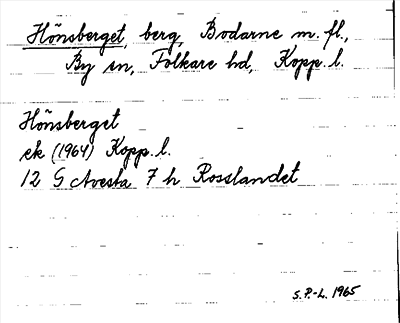 Hönsberget, berg, Bodarne m. fl.,
By sn, Folkare hd, Kopp. l.
Hönsberget
ek (1964) Kopp. l.
12 G Avesta 7 h Rosslandet
S.P.-L. 1965